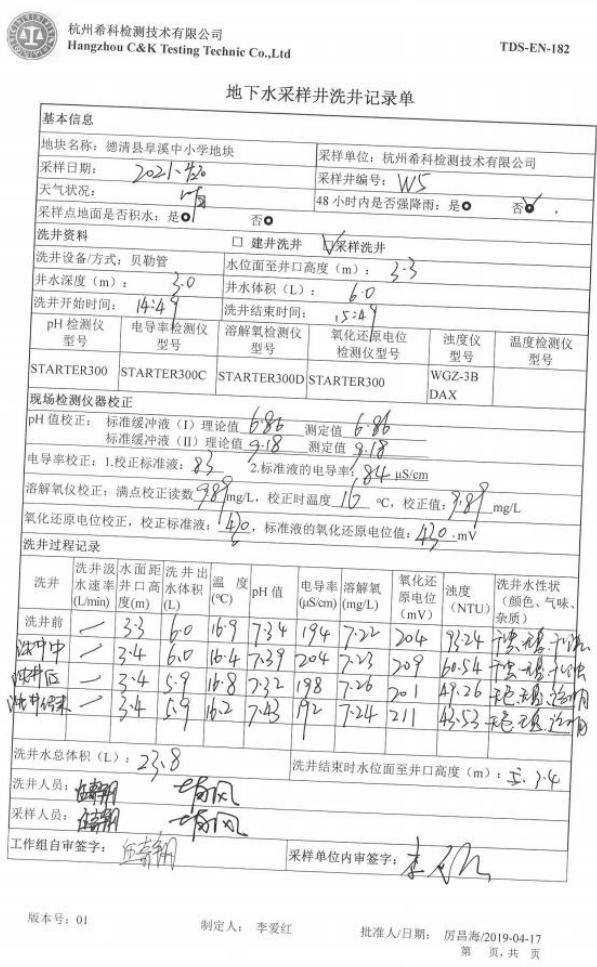 杭州希科检测技术有限公司
Hangzhou C&K Testing Technic Co.,Ltd
TDS-EN-182
地下水采样井洗井记录单
基本信息
地块名称：德清县阜溪中小学地块 采样单位：杭州希科检测技术有限公司
采样日期：2021. 4.20 采样井编号：W5
天气状况：晴 48 小时内是否强降雨：是 否√
采样点地面是否积水：是 否
洗井资料 □ 建井洗井 ☑采样洗井
洗井设备/方式：贝勒管 水位面至井口高度（m）：3.3
井水深度（m）：3.0 井水体积（L）：6.0
洗井开始时间：14:49 洗井结束时间：15:49
pH 检测仪型号 电导率检测仪型号 溶解氧检测仪型号 氧化还原电位检测仪型号 浊度仪型号 温度检测仪型号
STARTER300 STARTER300C STARTER300D STARTER300 WGZ-3B DAX
现场检测仪器校正
pH 值校正： 标准缓冲液（I）理论值 6.86 测定值 6.86
标准缓冲液（II）理论值 9.18 测定值 9.18
电导率校正：1.校正标准液：83 2.标准液的电导率：84 μS/cm
溶解氧仪校正：满点校正读数 9.89 mg/L，校正时温度 16 ℃，校正值：9.89 mg/L
氧化还原电位校正，校正标准液：430，标准液的氧化还原电位值：430.mV
洗井过程记录
洗井 洗井汲水速率(L/min) 水面距井口高度(m) 洗井出水体积(L) 温度(℃) pH 值 电导率(μS/cm) 溶解氧(mg/L) 氧化还原电位(mV) 浊度(NTU) 洗井水性状（颜色、气味、杂质）
洗井前 / 3.3 6.0 16.9 7.34 194 7.22 204 93.24
洗井中 / 3.4 6.0 16.4 7.39 204 7.23 209 60.54
洗井后 / 3.4 5.9 16.8 7.32 198 7.26 201 49.26 无色、无臭、透明
洗井结束 / 3.4 5.9 16.2 7.43 192 7.24 211 43.53 无色、无臭、透明
洗井水总体积（L）：23.8 洗井结束时水位面至井口高度（m）：3.4
洗井人员：
采样人员：
工作组自审签字： 采样单位内审签字：
版本号：01 制定人： 李爱红 批准人/日期： 厉昌海/2019-04-17
第 页，共 页